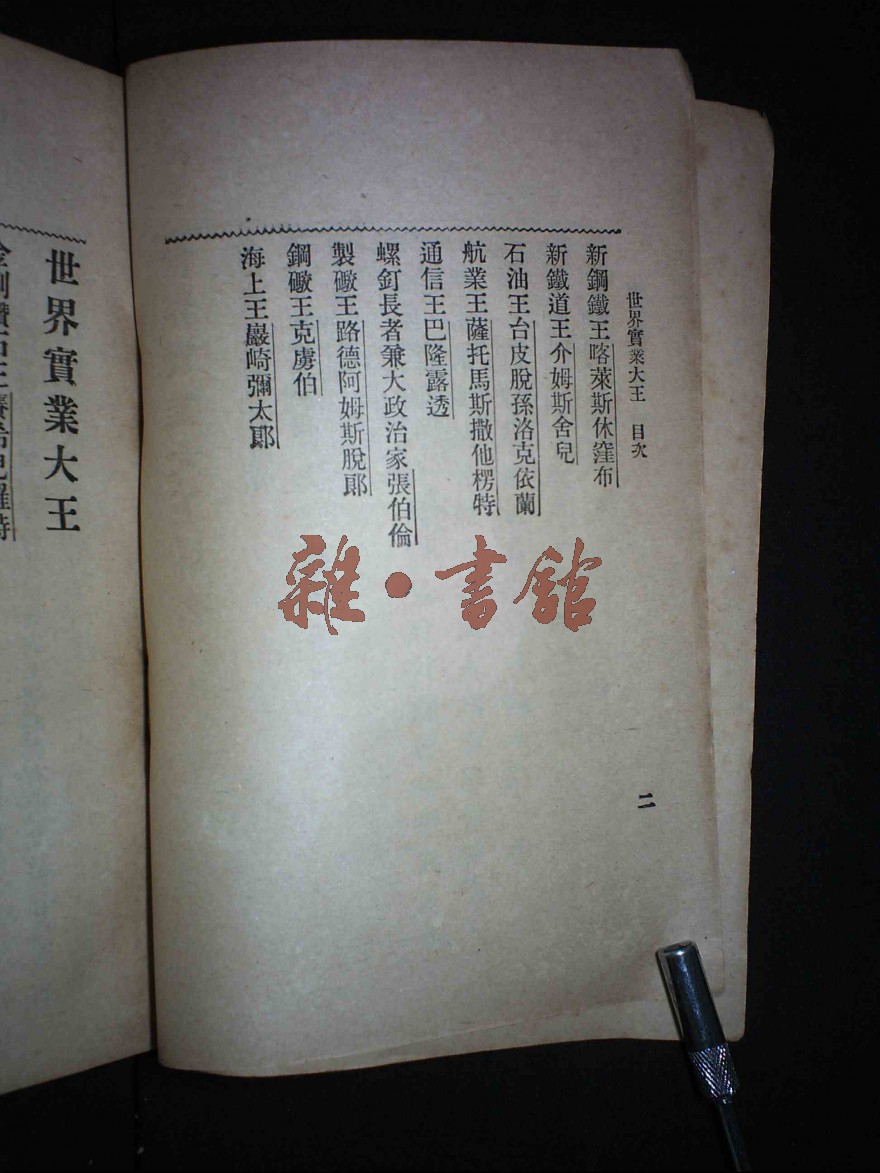 世界實業大王 目次
新鋼鐵王喀萊斯休窪布
新鐵道王介姆斯舍兒
石油王台皮脫孫洛克依蘭
航業王薩托馬斯撒他楞特
通信王巴隆露透
螺釘長者兼大政治家張伯倫
製礮王路德阿姆斯脫郎
鋼礮王克虜伯
海上王巖崎彌太郎
二
世界實業大王
雜•書館